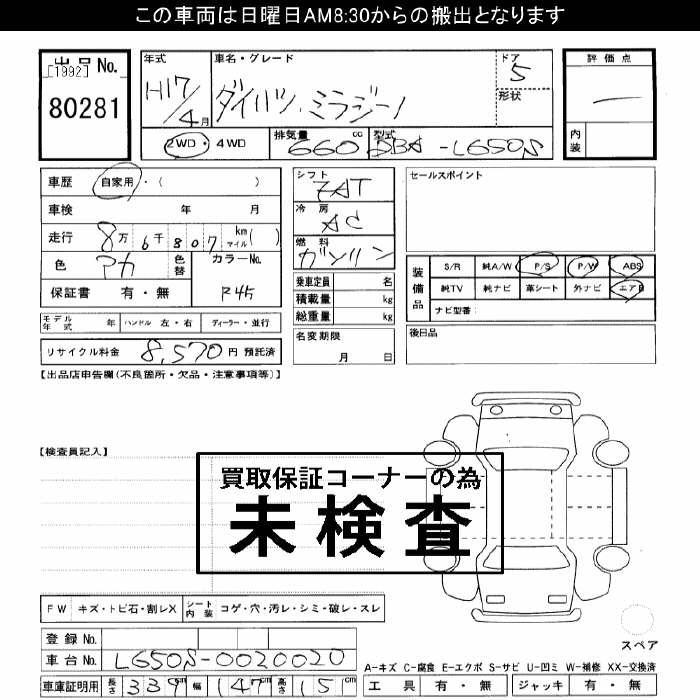 この車両は日曜日AM8:30からの搬出となります
出品No.
[1992]
80281
年式
H17/4月
車名・グレード
ダイハツ、ミラジーノ
ドア
5
形状
評価点
―
内装
2WD・4WD
排気量
660cc
型式
DBA-L650S
車歴 自家用・( )
車検 年 月
走行 8万6千807km マイル( )
色 アカ
色替
カラーNo.
R45
保証書 有・無
シフト
7AT
冷房
AC
燃料
ガソリン
乗車定員 名
積載量 kg
総重量 kg
名変期限
月 日
セールスポイント
装備品
S/R 純A/W P/S P/W ABS
純TV 純ナビ 革シート 外ナビ エアB
ナビ型番:
後日品
モデル年式 年 ハンドル 左・右 ディーラー・並行
リサイクル料金 8,570円 預託済
【出品店申告欄(不良箇所・欠品・注意事項等)】
【検査員記入】
買取保証コーナーの為
未検査
FW キズ・トビ石・割レX シート内装 コゲ・穴・汚レ・シミ・破レ・スレ
登録No.
車台No. L650S-0020020
車庫証明用 長さ 339cm 幅 147cm 高さ 15cm
スペア
A-キズ C-腐食 E-エクボ S-サビ U-凹ミ W-補修 XX-交換済
工具 有・無 ジャッキ 有・無